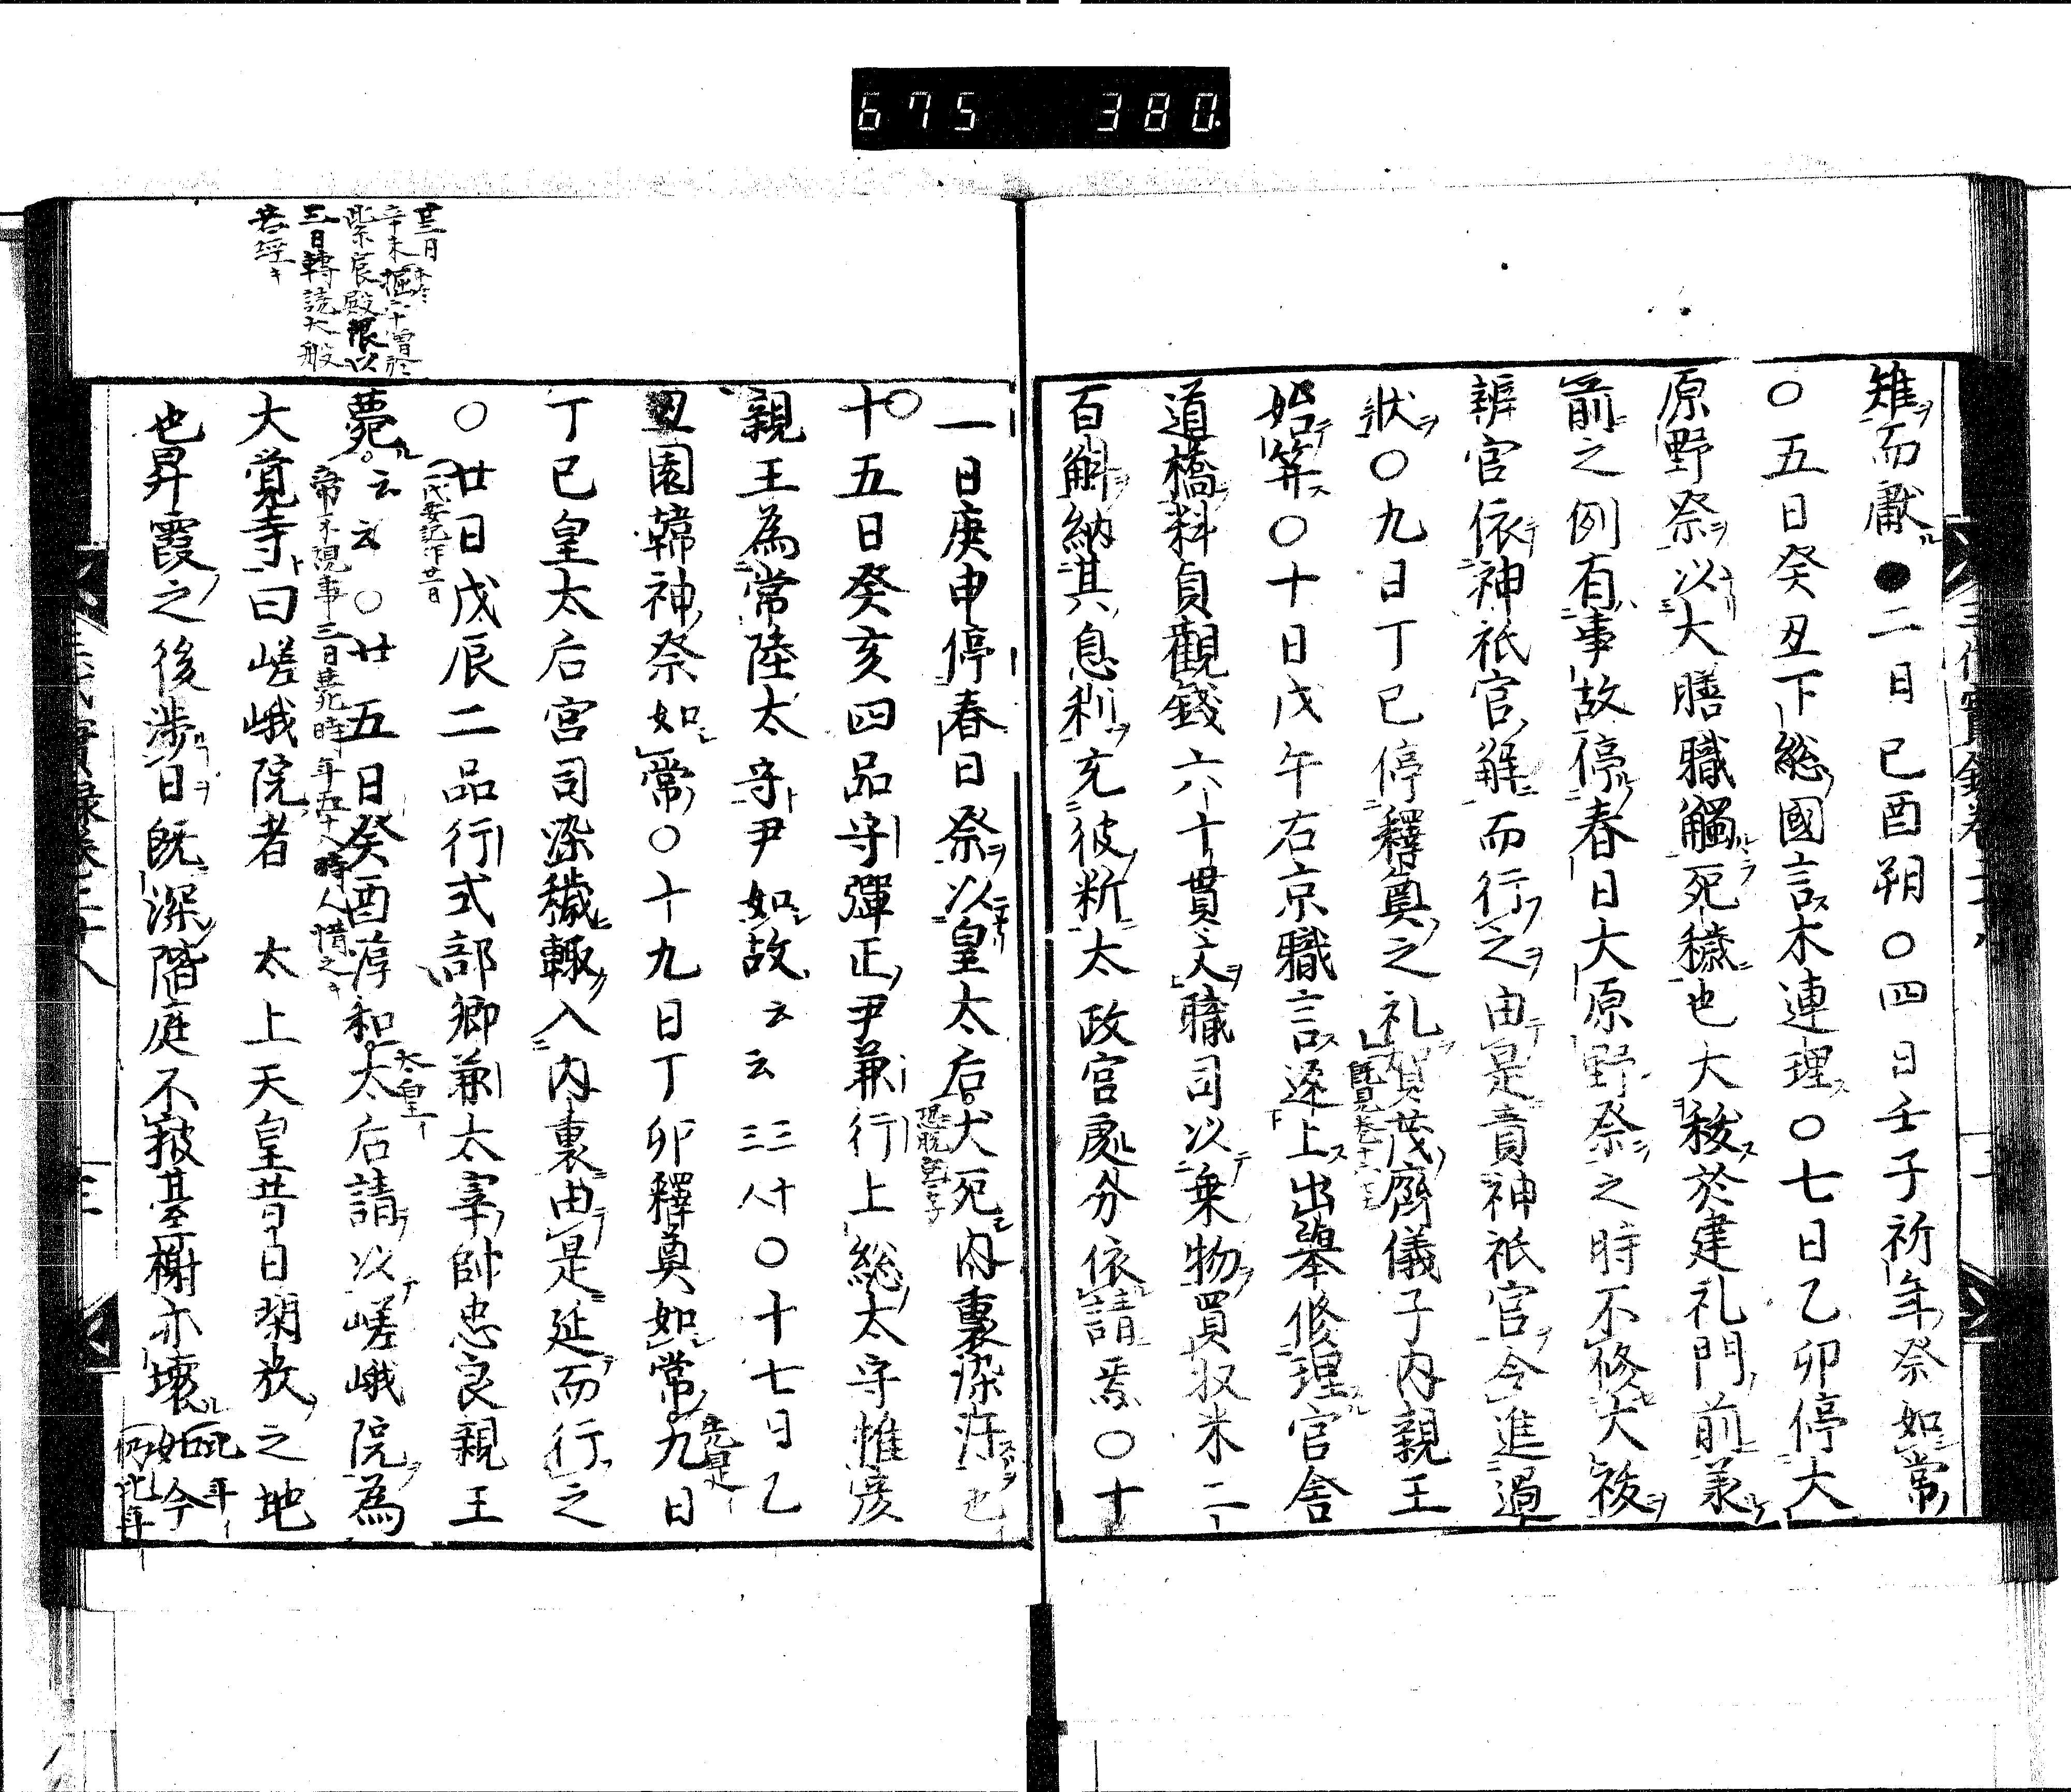 675 380
雉而獻●二月己酉朔○四日壬子祈年祭如常
○五日癸丑下総國言木連理○七日乙卯停大
原野祭以大膳職觸死穢也大秡於建礼門前
前之例有事故停春日大原野祭之時不修大祓
辨官依神祇官解而行之由是責神祇官令進過
狀○九日丁巳停釋奠之礼賀茂齋儀子内親王
始笄○十日戊午右京職言返上出舉修理官舎
道橋料貞觀錢六十貫文職司以乗物買収米二
百斛納其息利充彼新太政官處分依請焉○十
一日庚申停春日祭以皇太后犬死内裏染汚也
十五日癸亥四品守彈正尹兼行上総太守惟彦
親王為常陸太守尹如故云云三三八十○十七日乙
丑園韓神祭如常○十九日丁卯釋奠如常九日
先是
丁巳皇太后宮司染穢輙入内裏由是延而行之
○廿日戊辰二品行式部卿兼太宰帥忠良親王
薨云云○廿五日癸酉淳和太后請以嵯峨院為
太皇
帝不視事三日薨時年五十八時人惜之
大覚寺曰嵯峨院者 太上天皇昔日閑放之地
也昇霞之後渉日既深階庭不披臺榭亦壊如今
辛未
紫宸殿限以
三日轉読大般
若経